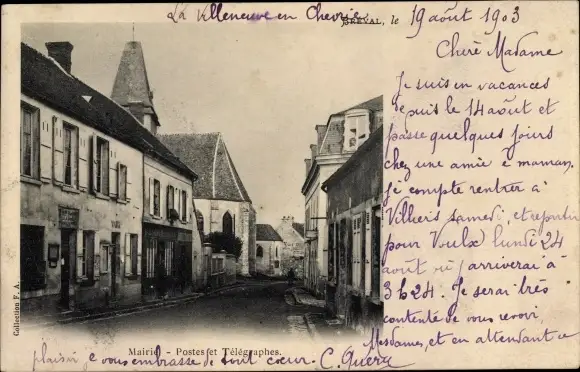 La Villeneuve en Chevrie
BREVAL, le 19 août 1903
Chère Madame
Je suis en vacances
depuis le 14 août et
passe quelques jours
chez une amie à maman.
Je compte rentrer à
Villiers samedi, et repartir
pour Voulx lundi 24
août où j'arriverai à
3h24. Je serai très
contente de vous revoir,
Mesdames, et en attendant ce
plaisir je vous embrasse de tout cœur. C. Query
Mairie - Postes et Télégraphes.
Collection F. A.